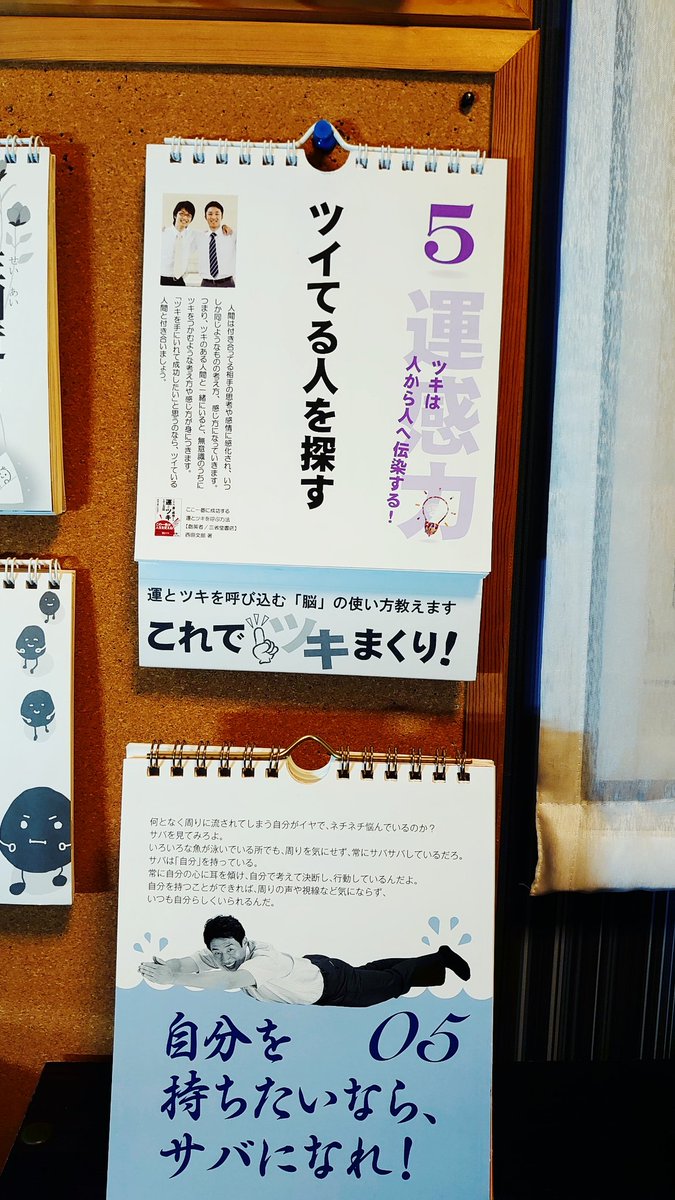 5
運感力
ツキは
人から人へ伝染する!
ツイてる人を探す
人間は付き合ってる相手の思考や感情に感化され、いつ
しか同じようなものの考え方、感じ方になっていきます。
つまり、ツキのある人間と一緒にいると、無意識のうちに
ツキをつかむような考え方や感じ方が身につきます。
「ツキを手にいれて成功したい」と思うのなら、ツイている
人間と付き合いましょう。
ここ一番に成功する
運とツキを呼ぶ方法
【創英社/三省堂書店】
西田文郎 著
運とツキを呼び込む「脳」の使い方教えます
これでツキまくり!
せい
あい
何となく周りに流されてしまう自分がイヤで、ネチネチ悩んでいるのか?
サバを見てみろよ。
いろいろな魚が泳いでいる所でも、周りを気にせず、常にサバサバしているだろ。
サバは「自分」を持っている。
常に自分の心に耳を傾け、自分で考えて決断し、行動しているんだよ。
自分を持つことができれば、周りの声や視線など気にならず、
いつも自分らしくいられるんだ。
05
自分を
持ちたいなら、
サバになれ!